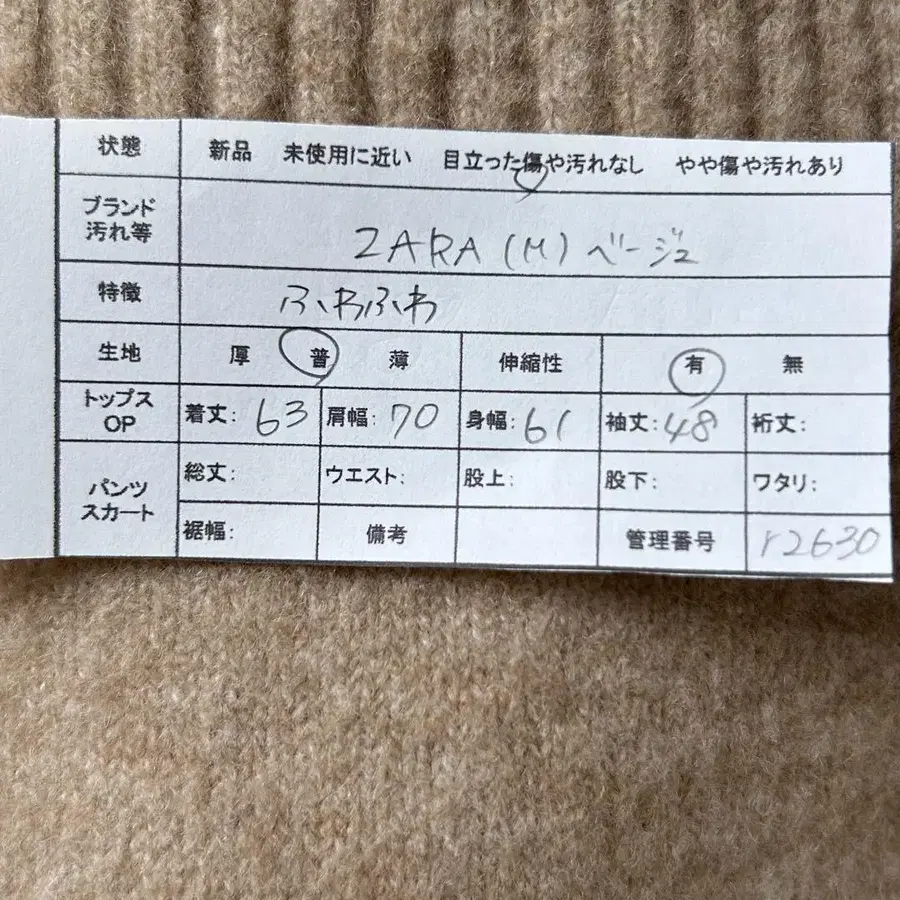 状態 新品 未使用に近い 目立った傷や汚れなし やや傷や汚れあり
ブランド
汚れ等 ZARA (M) ベージュ
特徴 ふわふわ
生地 厚 普 薄 伸縮性 有 無
トップス
OP 着丈: 63 肩幅: 70 身幅: 61 袖丈: 48 裄丈:
パンツ
スカート 総丈: ウエスト: 股上: 股下: ワタリ:
裾幅: 備考 管理番号 r2630